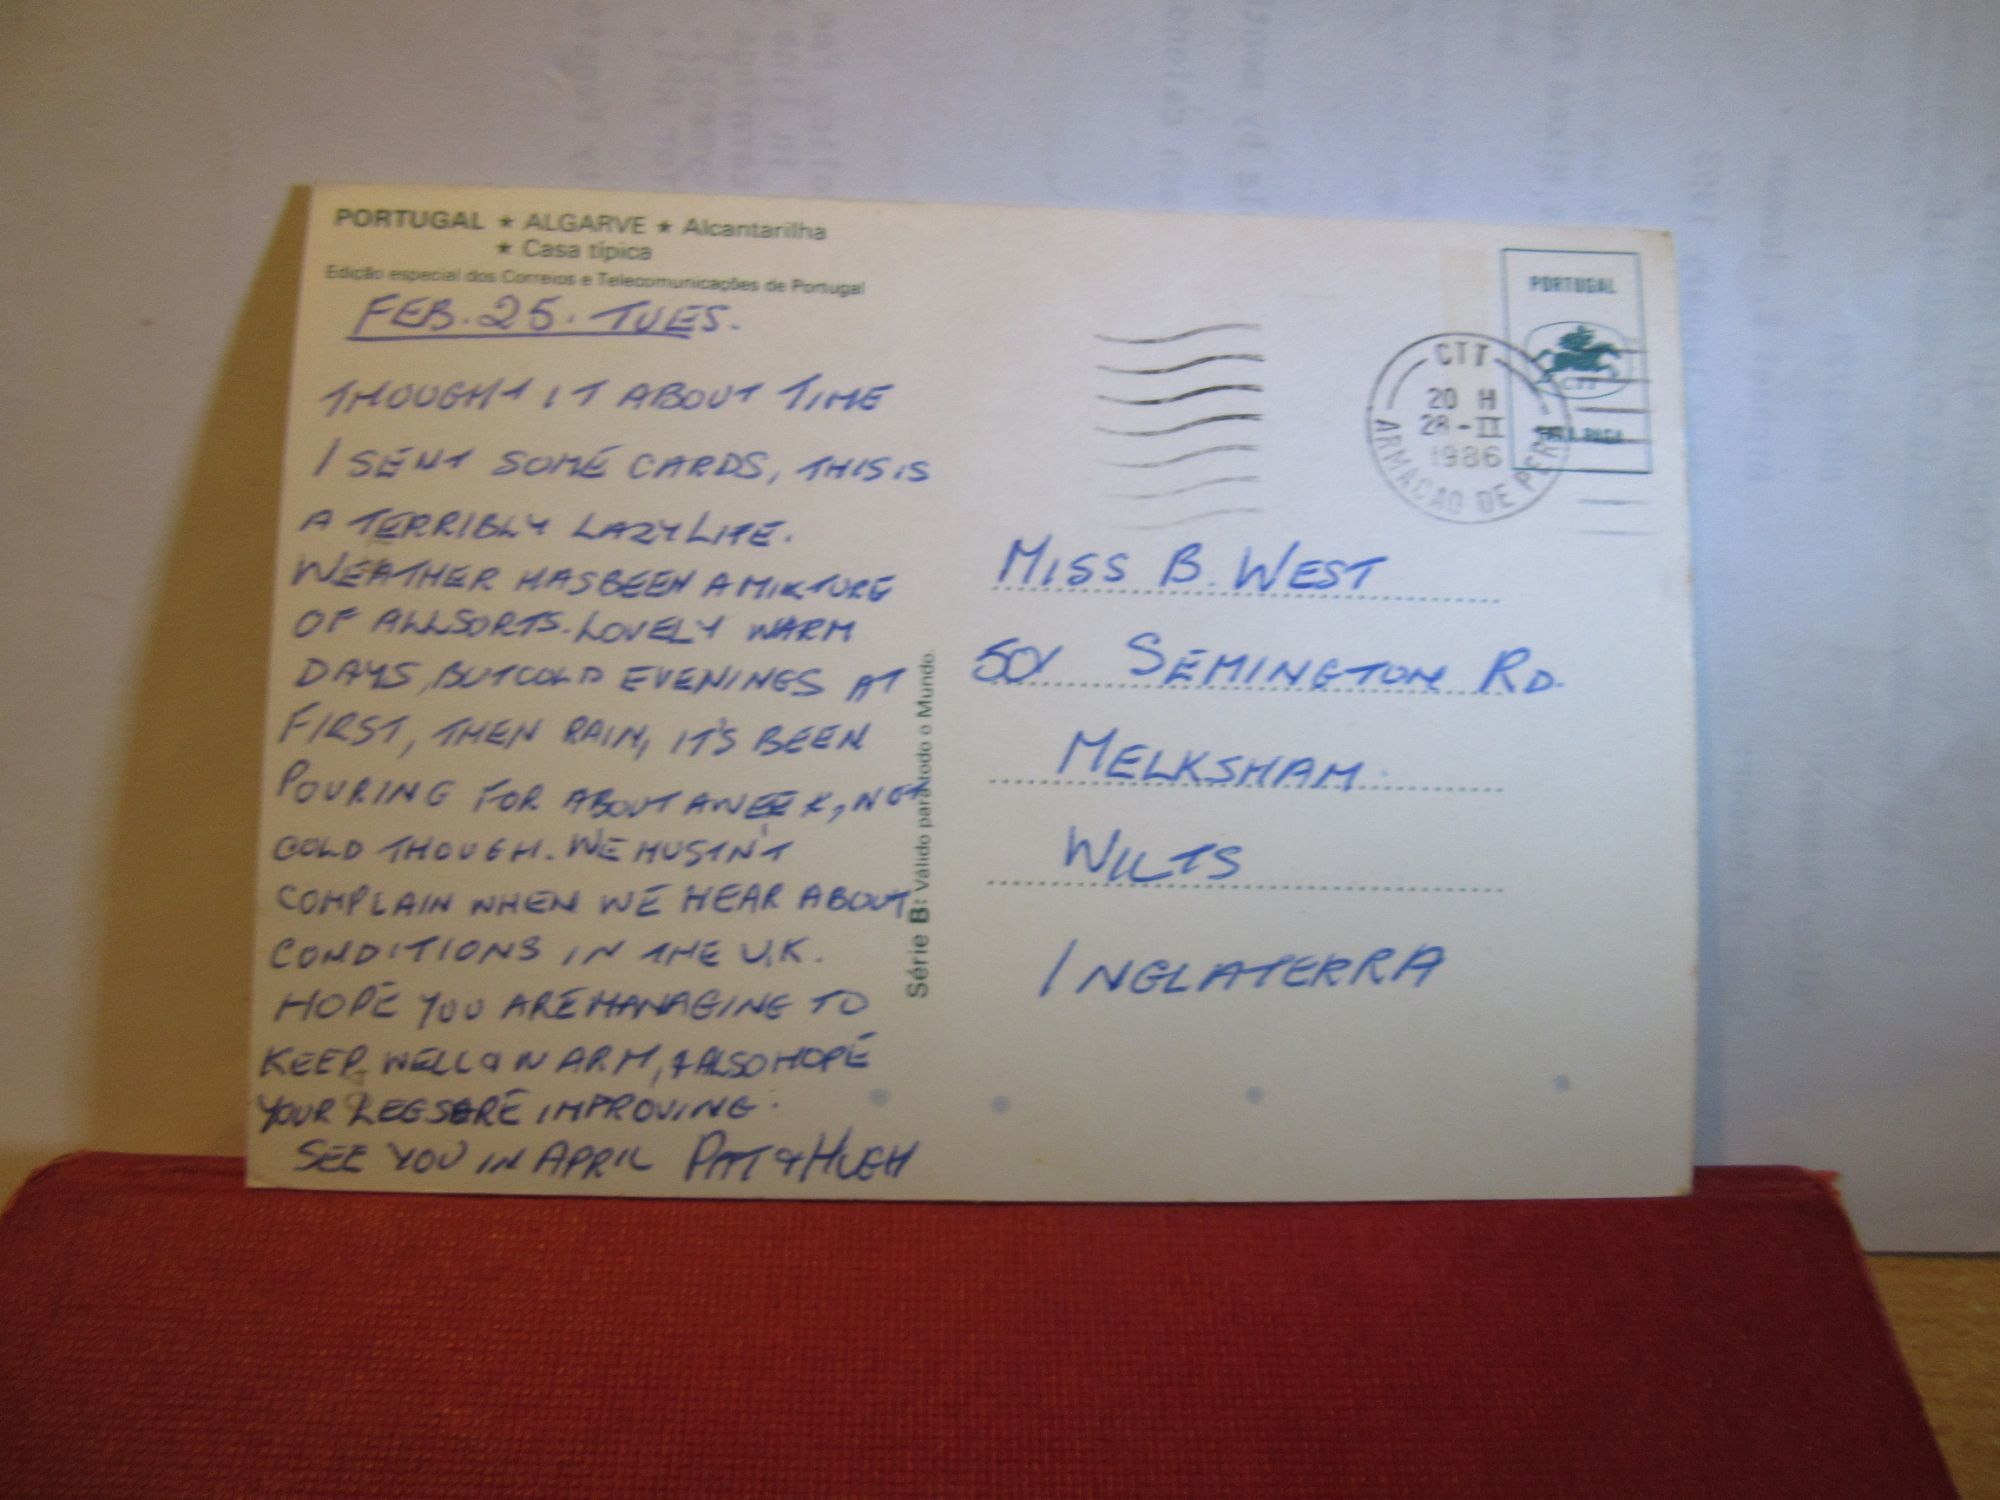 PORTUGAL ★ ALGARVE ★ Alcantarilha
★ Casa típica
Edição especial dos Correios e Telecomunicações de Portugal
FEB. 25. TUES.
THOUGHT IT ABOUT TIME
I SENT SOME CARDS, THIS IS
A TERRIBLY LAZY LIFE.
WEATHER HAS BEEN A MIXTURE
OF ALLSORTS. LOVELY WARM
DAYS, BUT COLD EVENINGS AT
FIRST, THEN RAIN, IT'S BEEN
POURING FOR ABOUT A WEEK, NOT
COLD THOUGH. WE MUSTN'T
COMPLAIN WHEN WE HEAR ABOUT
CONDITIONS IN THE U.K.
HOPE YOU ARE MANAGING TO
KEEP WELL & WARM, & ALSO HOPE
YOUR LEGS ARE IMPROVING.
SEE YOU IN APRIL PAT & HUGH
Série B: Válido para todo o Mundo.
PORTUGAL
CTT
20 H
28-II
1986
ARMACAO DE PERA
MISS B. WEST
SEMINGTON RD.
MELKSHAM.
WILTS
INGLATERRA